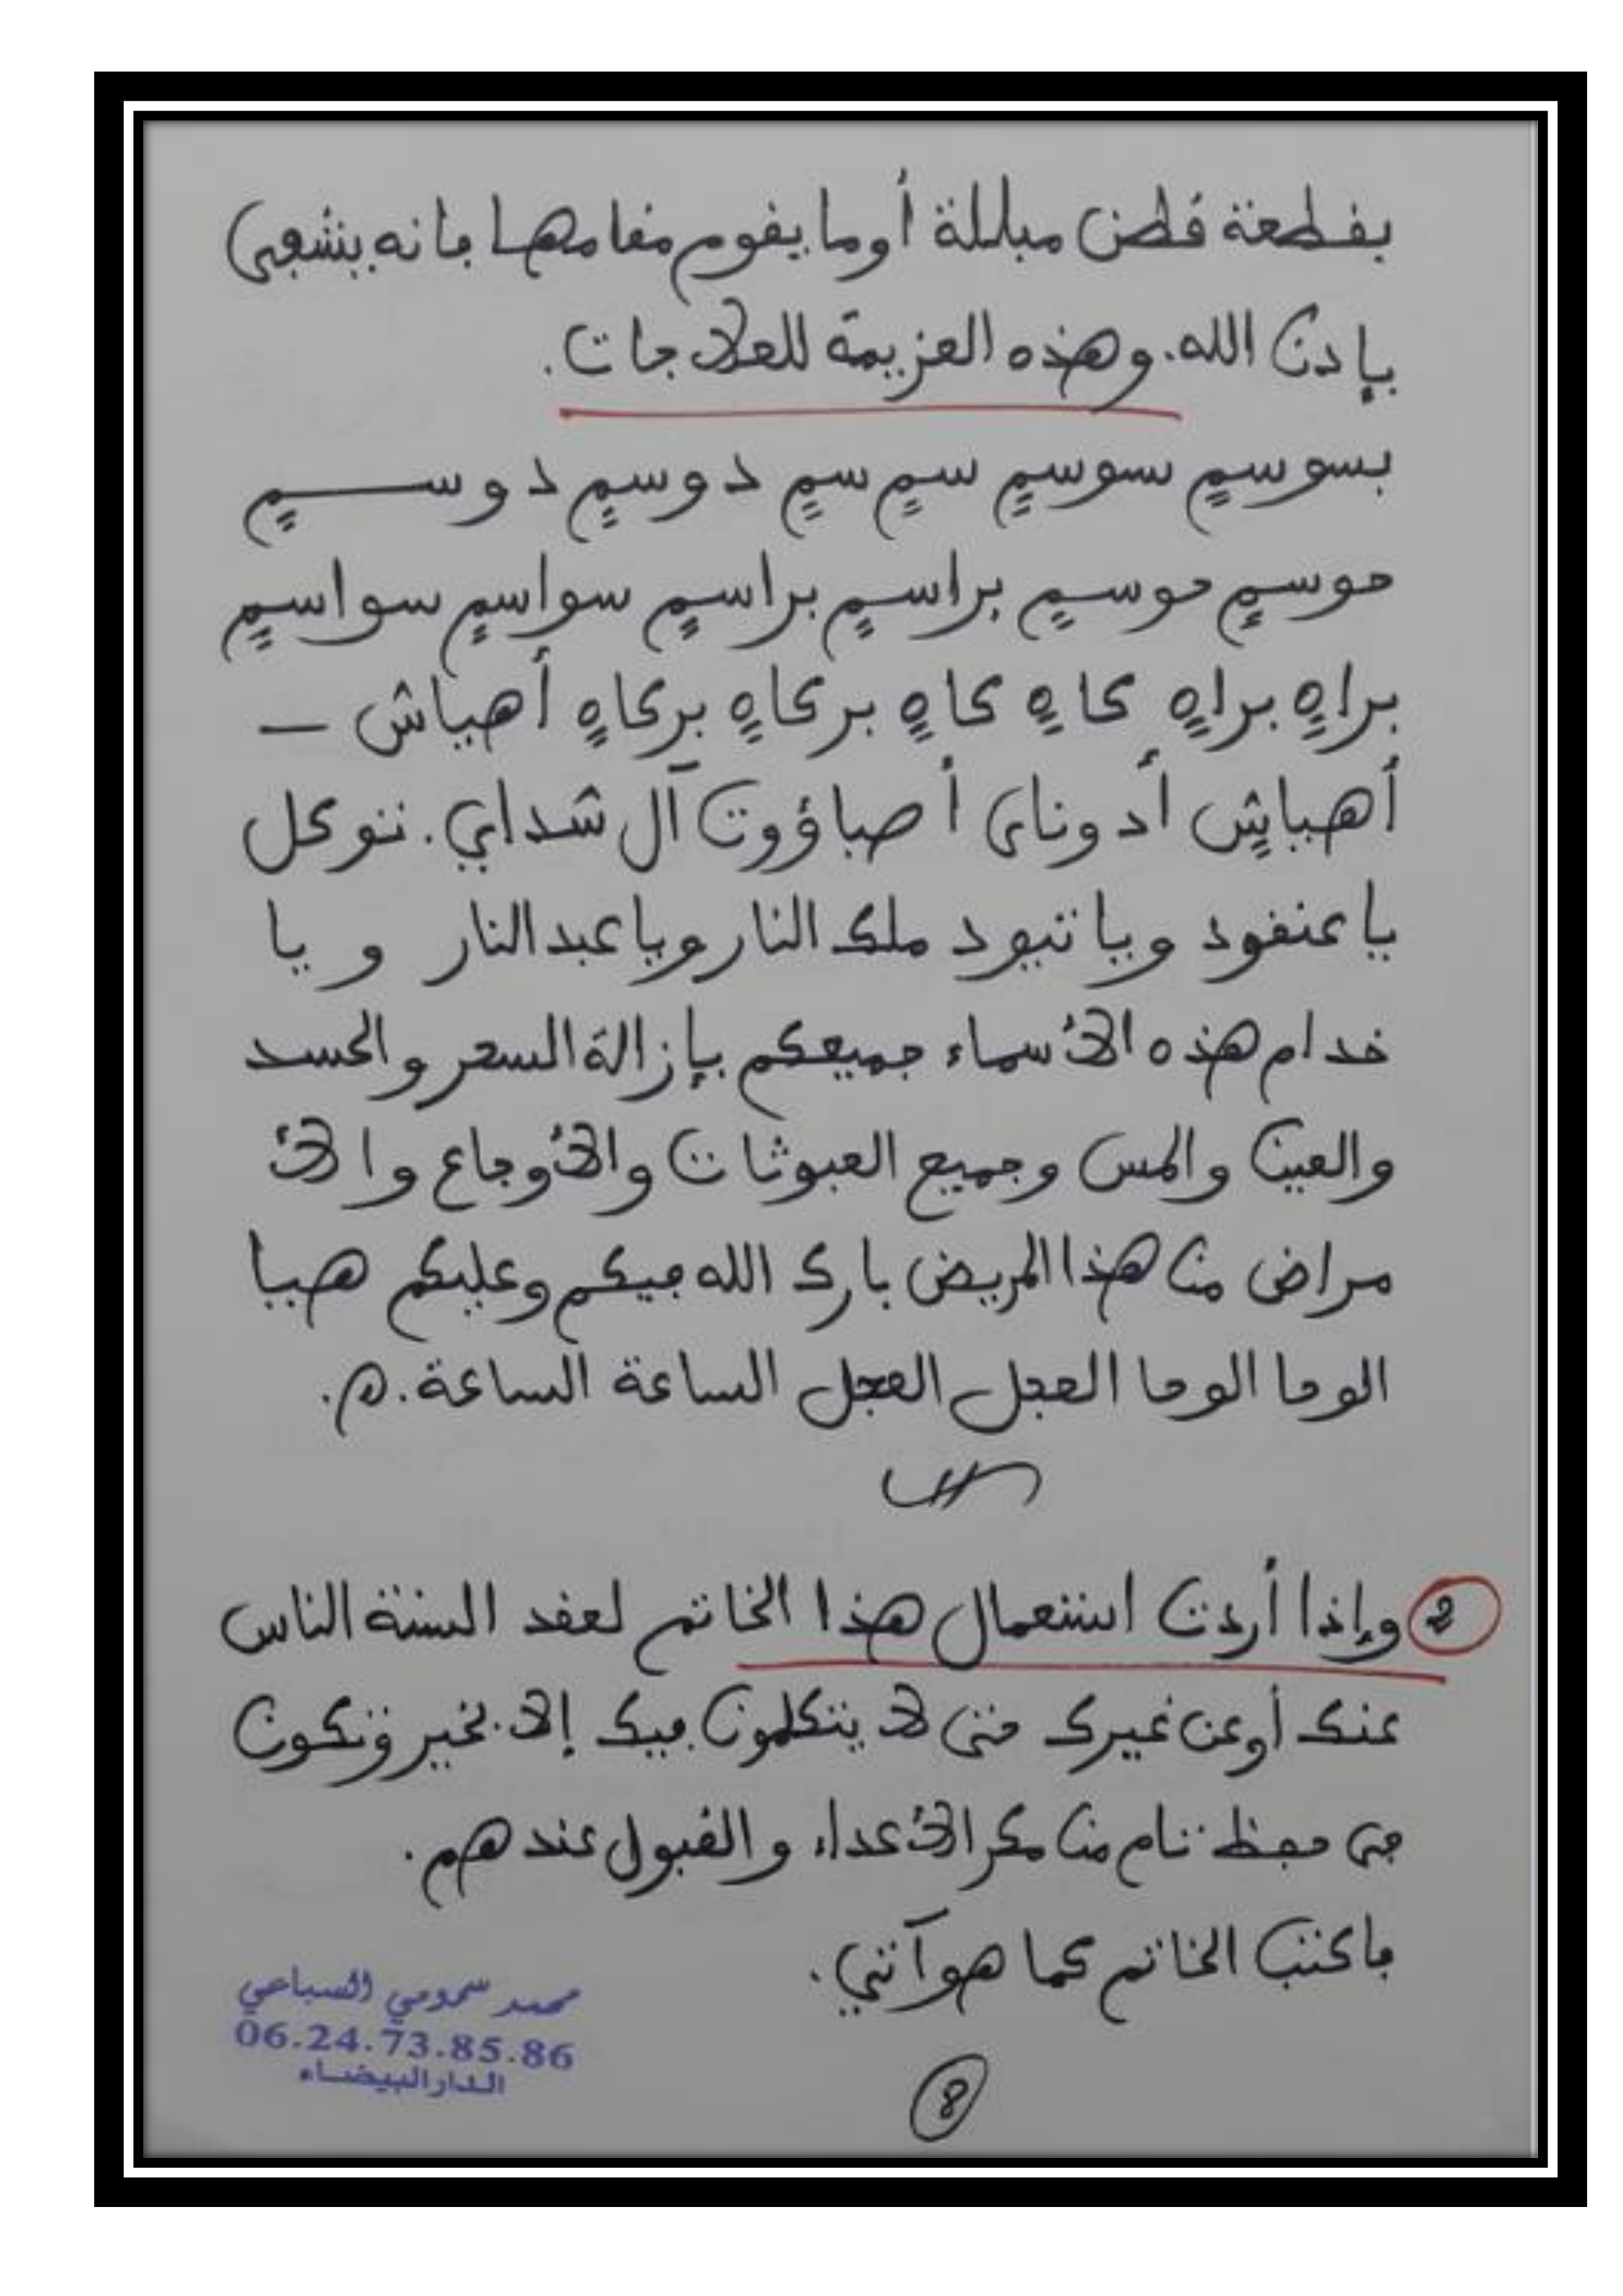 بقطعة قطن مبللة أو ما يقوم مقامها فانه يشفى
بإذن الله. وهذه العزيمة للعلاجات.
بسوسمٍ سوسمٍ سمٍ سمٍ دوسمٍ دوسمٍ
حوسمٍ حوسمٍ براسمٍ براسمٍ سواسمٍ سواسمٍ
براهٍ براهٍ كاهٍ كاهٍ بركاهٍ بركاهٍ أهياش -
أهياشٍ أدوناى أصباؤوت آل شداي. توكل
يا عنقود ويا تيود ملك النار ويا عبد النار و يا
خدام هذه الأسماء جميعكم بإزالة السحر والحسد
والعين والمس وجميع العبوثات والأوجاع والأ
مراض من هذا المريض بارك الله فيكم وعليكم هيا
الوحا الوحا العجل العجل الساعة الساعة. ه.
2 وإذا أردت استعمال هذا الخاتم لعقد السنة الناس
عنك أو عن غيرك حتى لا يتكلمون فيك إلا بخير وتكون
فى حفظ تام من مكر الأعداء والقبول عندهم.
فاكتب الخاتم كما هو آتي.
محمد السباعي
06.24.73.85.86
الدار البيضاء
8